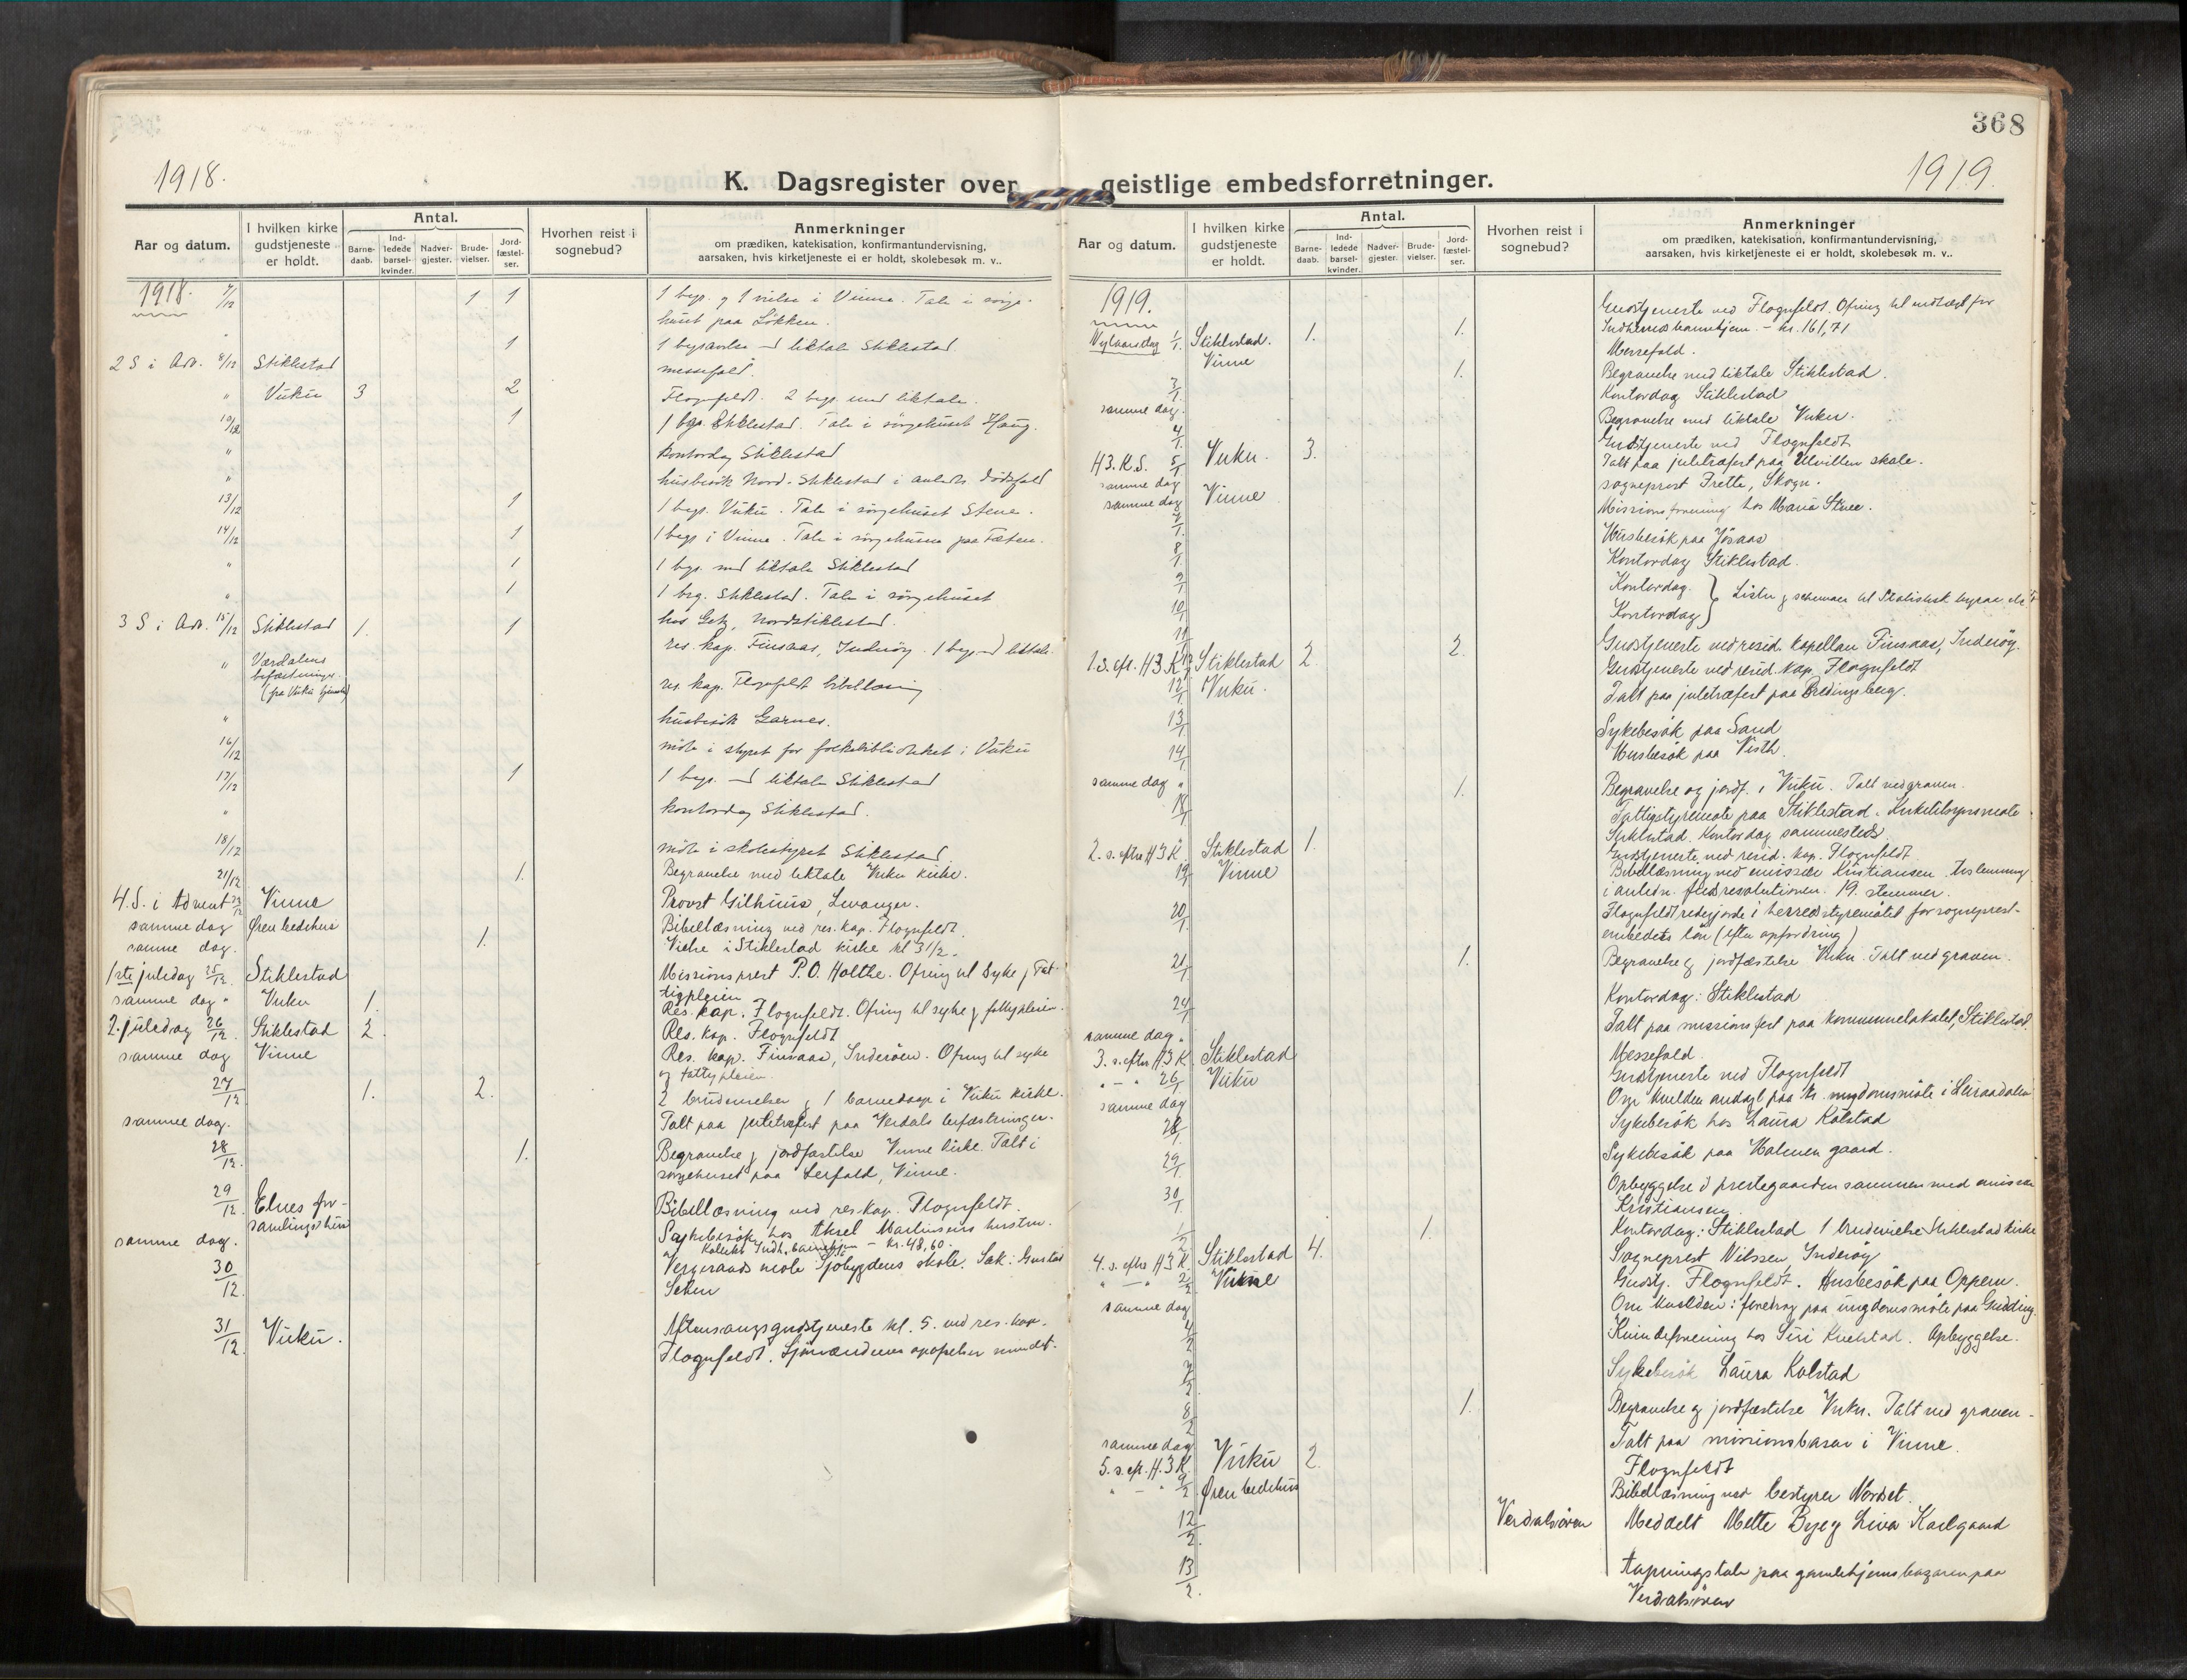 368
1918.
1919.
K. Dagsregister over geistlige embedsforretninger.
Aar og datum.
I hvilken kirke gudstjeneste er holdt.
Antal.
Barne-daab.
Ind-ledede barsel-kvinder.
Nadver-gjester.
Brude-vielser.
Jord-fæstel-ser.
Hvorhen reist i sognebud?
Anmerkninger
om prædiken, katekisation, konfirmantundervisning,
aarsaken, hvis kirketjeneste ei er holdt, skolebesøk m. v..
1918. 7/12 1 1 1 begr. og 1 vielse i Vinne. Tale i sørge-
huset paa Løkken.
" 1 1 begravelse med liktale Stiklestad.
2 S i Adv. 8/12 Stiklestad messefald.
" Vuku 3 2 Flognfeldt. 2 begr. med liktale.
10/12 1 1 begr. Stiklestad. Tale i sørgehuset Haug.
" kontordag Stiklestad
" husbesøk Nord-Stiklestad i anledn. dødsfald
13/12 1 1 begr. Vuku. Tale i sørgehuset Stene.
14/12 1 1 begr. i Vinne. Tale i sørgehuset paa Fæten.
" 1 1 begr. med liktale Stiklestad
" 1 1 begr. Stiklestad. Tale i sørgehuset
hos Getz, Nordstiklestad.
3 S i Adv. 15/12 Stiklestad 1. 1 res. kap. Finsaas, Inderøy. 1 begr. med liktale.
" Værdalens befæstninger (fra Vuku tjeneste) res. kap. Flognfeldt bibellæsning
" husbesøk Garnes.
16/12 møte i styret for folkebiblioteket i Vuku
17/12 1 1 begr. med liktale Stiklestad
" kontordag Stiklestad.
18/12 møte i skolestyret Stiklestad
21/12 1. Begravelse med liktale Vuku kirke.
4. S. i Advent 22/12 Vinne Provst Gilhuus, Levanger.
samme dag Øren bedehus Bibellæsning ved res. kap. Flognfeldt.
samme dag. 1. Vielse i Stiklestad kirke kl 3 1/2.
1ste juledag 25/12. Stiklestad Missionsprest P.O. Holthe. Ofring til syke og fat-
tigpleien
samme dag " Vuku 1. Res. kap. Flognfeldt. Ofring til syke og fattigpleien.
2. juledag 26/12. Stiklestad 2. Res. kap. Flognfeldt
samme dag Vinne Res. kap. Finsaas, Inderøen. Ofring til syke
og fattigpleien.
27/12 1. 2. 2 brudevielser og 1 barnedaap i Vuku kirke.
samme dag. Talt paa juletræfest paa Verdals befæstninger.
28/12. 1. Begravelse og jordfæstelse Vinne kirke. Talt i
sørgehuset paa Lerfald, Vinne.
29/12. Elnes for-
samlingshus Bibellæsning ved res. kap. Flognfeldt.
samme dag. Sykebesøk hos Aksel Martinsens hustru.
Kollekt Indh. barnehjem – kr. 48,60.
30/12. Vergeraads møte Sjøbygdens skole. Sak: Gustav
31/12. Vuku. Aftensangsgudstjeneste kl. 5. ved res. kap.
Flognfeldt. Sjømændenes opofrelser mindet.
Aar og datum.
I hvilken kirke gudstjeneste er holdt.
Antal.
Barne-daab.
Ind-ledede barsel-kvinder.
Nadver-gjester.
Brude-vielser.
Jord-fæstel-ser.
Hvorhen reist i sognebud?
Anmerkninger
om prædiken, katekisation, konfirmantundervisning,
aarsaken, hvis kirketjeneste ei er holdt, skolebesøk m. v..
1919. Gudstjeneste ved Flognfeldt. Ofring til indtægt for
Nytaarsdag 1/1. Stiklestad. 1. 1. Indherred barnehjem. – kr. 161,71
Vinne Messefald.
3/1. 1. Begravelse med liktale Stiklestad.
samme dag. Kontordag Stiklestad
4/1. Begravelse med liktale Vuku.
H3.K.S. 5/1 Vuku. 3. Gudstjeneste ved Flognfeldt
samme dag Talt paa juletræfest paa Ulvillen skole.
samme dag Vinne sogneprest Frette, Skogn.
7/1. Missionsforening hos Maria Stuee.
8/1. Husbesøk paa Jøsaas
9/1 Kontordag Stiklestad.
10/1 Kontordag.
11/1 Kontordag } Lister og schemaer til Statistisk byraa etc.
1. S. eft. H3.K. 12/1 Stiklestad 2. 2. Gudstjeneste ved resid. kapellan Finsaas, Inderøy.
12/1 Vuku. Gudstjeneste ved resid. kap. Flognfeldt
13/1 Talt paa juletræfest paa Bredingsberg.
14/1 Sykebesøk paa Sand
samme dag " Husbesøk paa Visth.
18/1 1. Begravelse og jordf. i Vuku. Talt ved graven.
Fattigstyremøte paa Stiklestad. Kirketilsynsmøte
Stiklestad. Kontordag sammesteds.
2. s. efter H3K. Stiklestad 1. Gudstjeneste ved resid. kap. Flognfeldt
19/1 Vinne Bibellæsning ved emissær Kristiansen. Avstemning
i anledn. fredsresolutionen. 19. stemmer.
20/1 Flognfeldt redegjorde i herredsstyremøtet for sogneprest-
embedets løn (efter opfordring)
21/1 1. Begravelse og jordfæstelse Vuku. Talt ved graven.
24/1 Kontordag: Stiklestad
samme dag. Talt paa missionsfest paa kommunelokalet, Stiklestad.
3. s. efter H3K. Stiklestad Messefald.
" – " 26/1 Vuku Gudstjeneste ved Flognfeldt
samme dag Om kvelden andagt paa kr. ungdomsmøte i Leiraadalen
28/1. Sykebesøk hos Laura Kolstad
29/1 Sykebesøk paa Holmen gaard.
30/1 Opbyggelse i prestegaarden sammen med emissær
Kristiansen
1/2 1. Kontordag: Stiklestad 1 brudevielse Stiklestad kirke
4. s. efter H3K. Stiklestad 4. Sogneprest Nilssen, Inderøy
" – " 2/2 Vinne Gudstj. Flognfeldt. Husbesøk paa Oppem.
samme dag Om kvelden: foredrag paa ungdomsmøte paa Gudding.
4/2 Kvindeforening hos Siri Kvelstad. Opbyggelse.
7/2 Sykebesøk Laura Kolstad
8/2 1. Begravelse og jordfæstelse Vuku. Talt ved graven.
samme dag Talt paa missionsbasar i Vinne.
5. s. eft. H.3K. Vuku 2. Flognfeldt
" – " 9/2 Øren bedehus Bibellæsning ved bestyrer Nordset.
12/2. Verdalsøren Meddelt Mette Bye og Liva Karlgaard
13/2. Aapningstale paa gamlehjemsbazaren paa
Verdalsøren